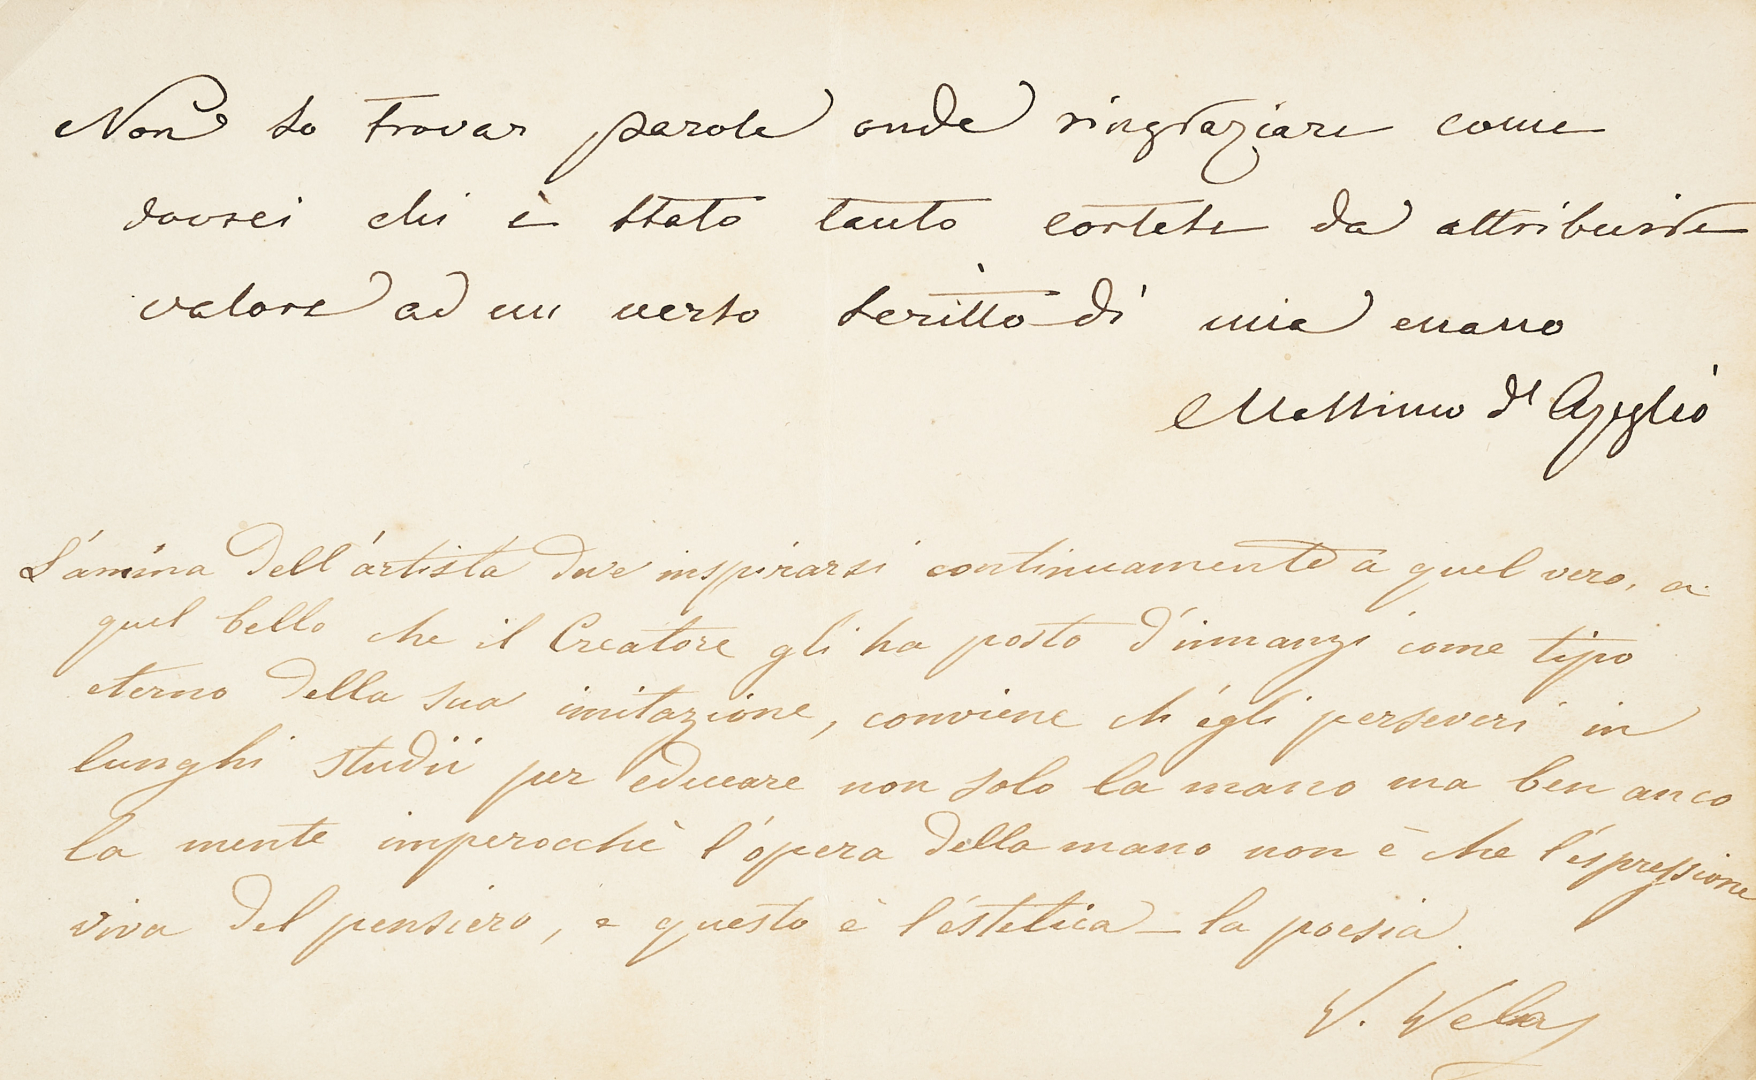 Non so trovar parole onde ringraziare come
dovrei chi è stato tanto cortese da attribuire
valore ad un verso scritto di mia mano
Massimo d'Azeglio
L'anima dell'artista deve inspirarsi continuamente a quel vero, a
quel bello che il Creatore gli ha posto d'innanzi come tipo
eterno della sua imitazione, conviene ch'egli perseveri in
lunghi studii per educare non solo la mano ma ben anco
la mente imperocchè l'opera della mano non è che l'espressione
viva del pensiero, e questo è l'estetica – la poesia.
V. Vela